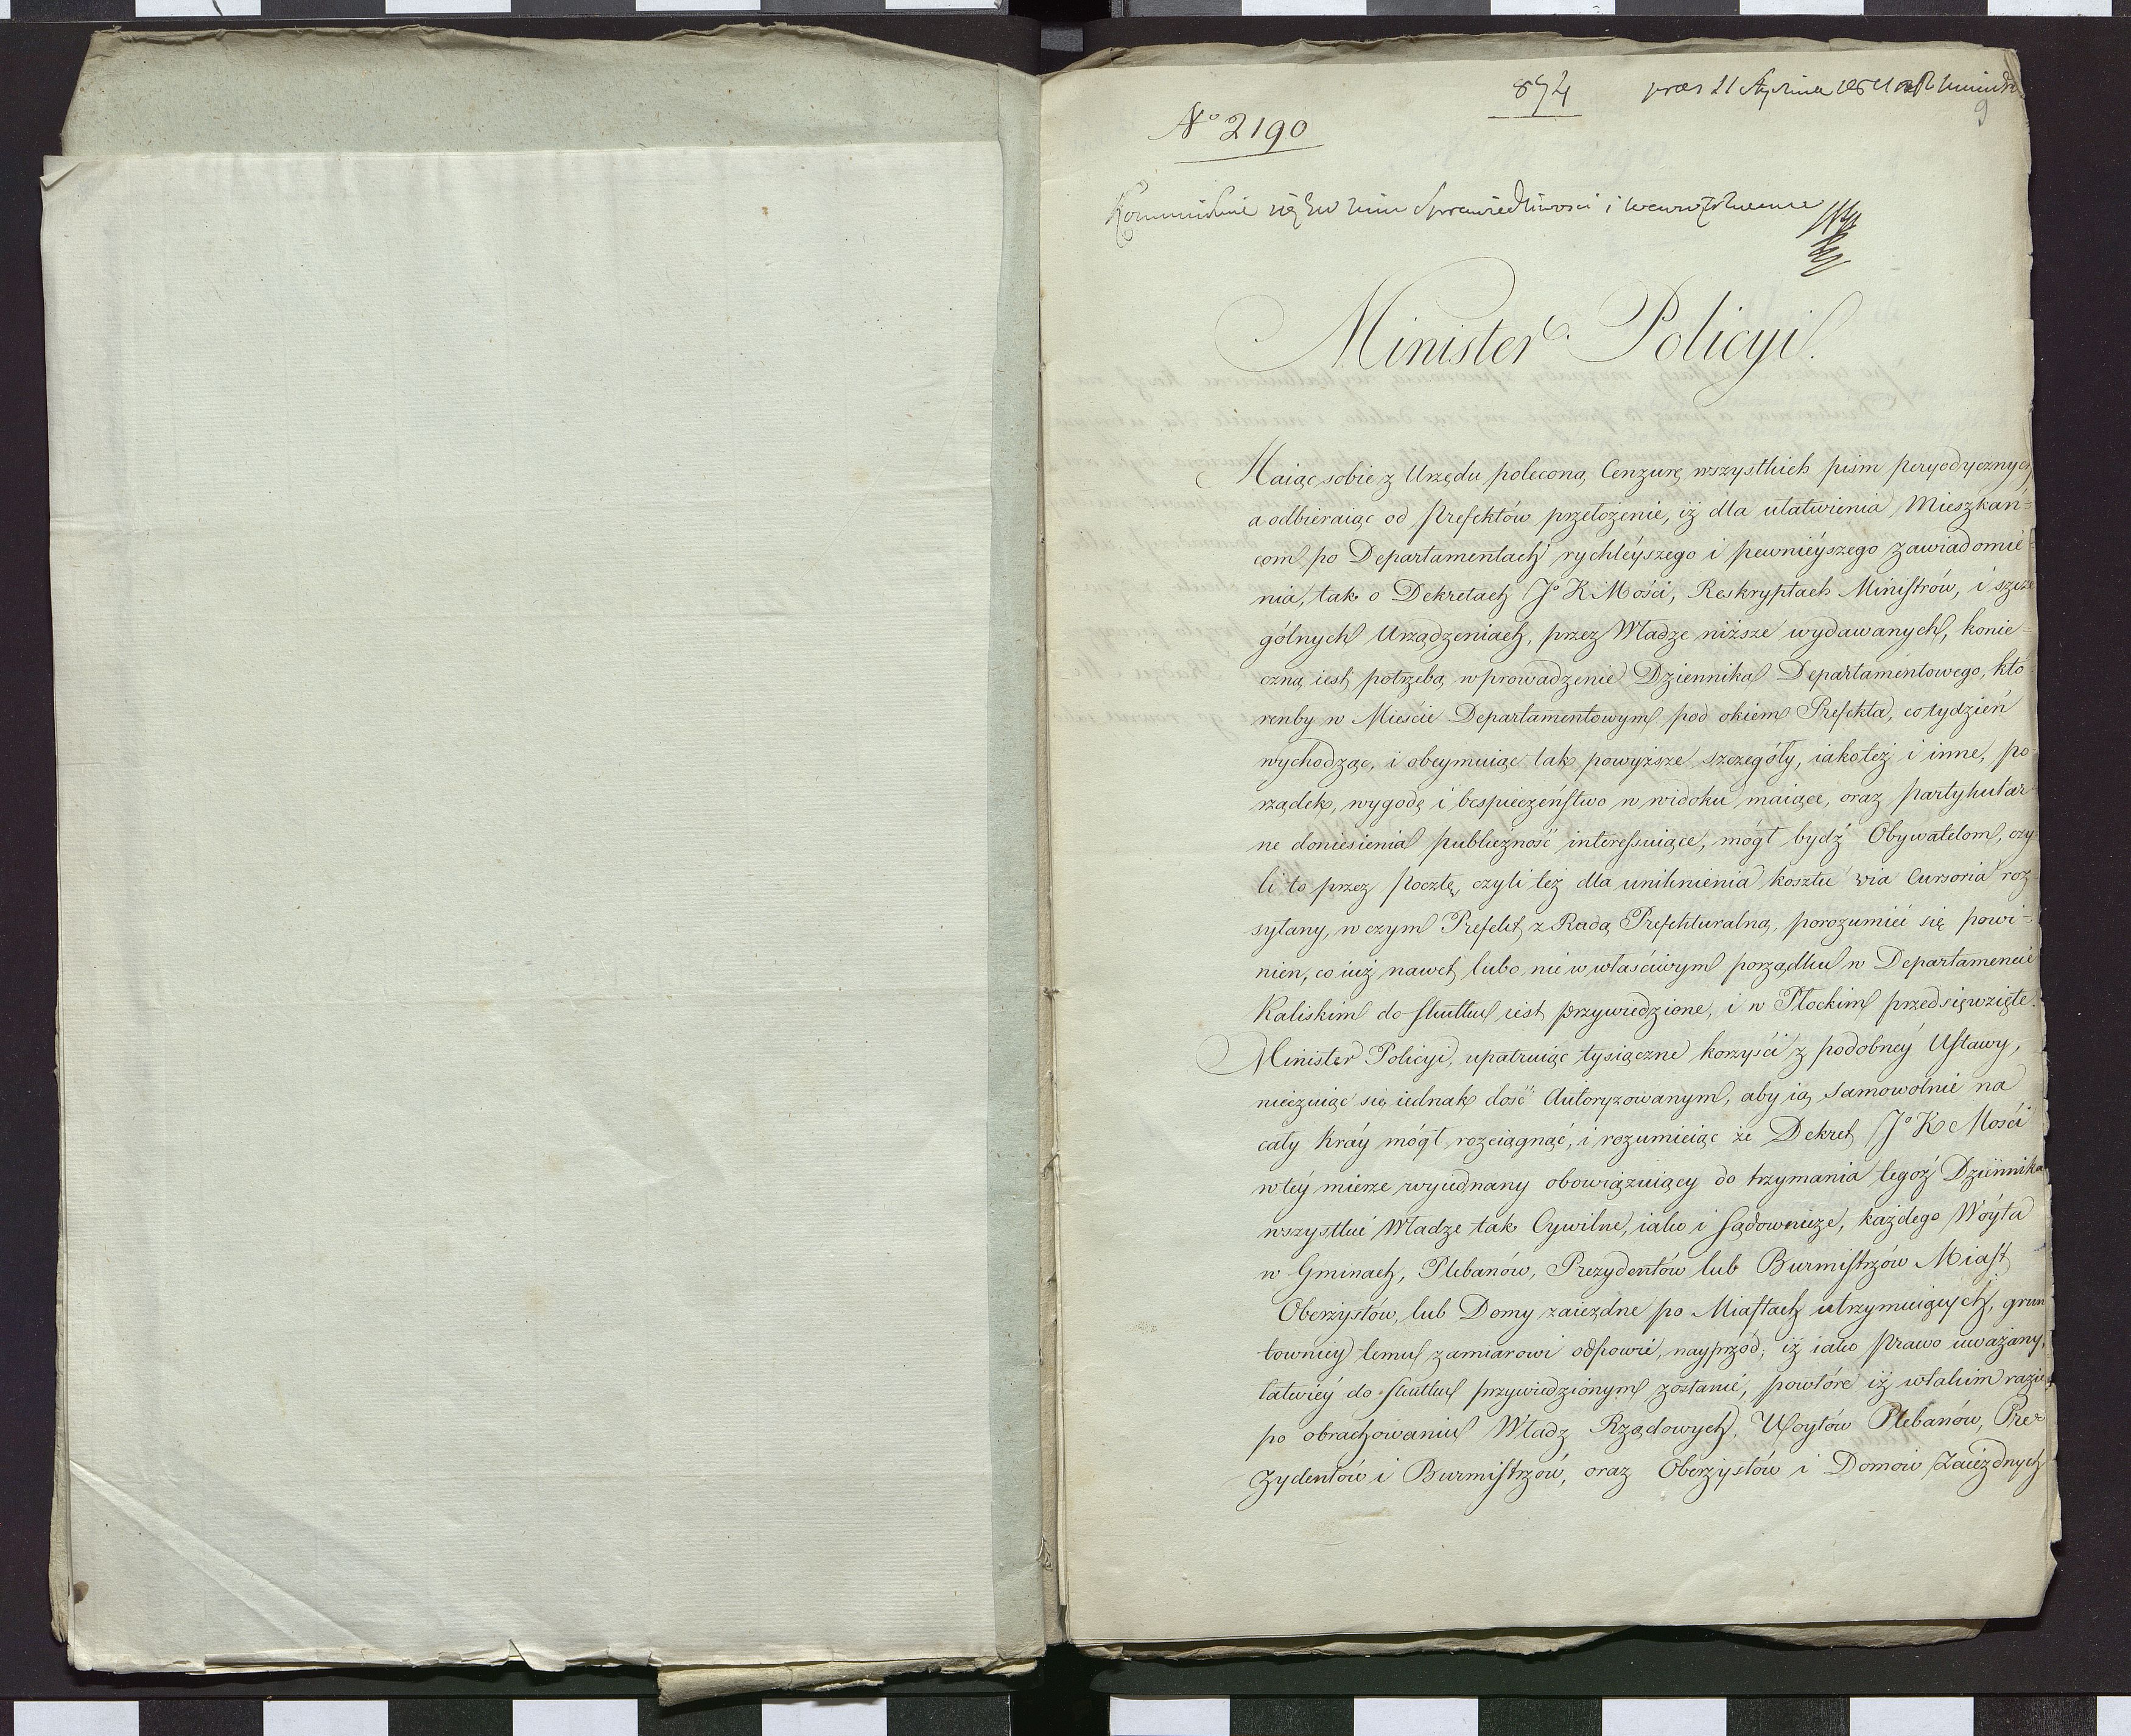 874
9
No 2190
Sprawiedliwosci i
Minister Policyi.
Maiąc sobie z Urzędu poleconą Cenzurę wszystkich pism peryodycznych
a odbieraiąc od Prefektów przełożenie, iż dla ułatwienia Mieszkań=
com po Departamentach rychleyszego i pewnieyszego zawiadomie=
nia, tak o Dekretach Jo K Mości, Reskryptach Ministrów, i szcze
gólnych Urządzeniach, przez Władze niższe wydawanych, konie=
czną iest potrzebą wprowadzenie Dziennika Departamentowego, któ
renby w Mieście Departamentowym pod okiem Prefekta, co tydzień
wychodząc, i obeymuiąc tak powyższe szczegóły, iakoteż i inne, po
rządek, wygodę i bespieczeństwo w widoku maiące, oraz partykular
ne doniesienia publiczność interessuiące, mógł bydź Obywatelom, czy
li to przez Pocztę, czyli też dla uniknienia kosztu via Cursoria roz
syłany, w czym Prefekt z Radą Prefekturalną, porozumieć się powi=
nien, co iuż nawet lubo nie w właściwym porządku w Departamencie
Kaliskim do skutku iest przywiedzione, i w Płockim przedsięwzięte.
Minister Policyi, upatruiąc tysiączne korzyści z podobney Ustawy,
nieczuiąc się iednak dość Autoryzowanym, aby ią samowolnie na
cały Kray mógł rozciągnąć, i rozumieiąc że Dekret Jo K Mości
w tey mierze wyiednany obowiązuiący do trzymania tegoż Dziennika
wszystkie Władze tak Cywilne, iako i Sądownicze, każdego Woyta
w Gminach, Plebanów, Prezydentów lub Burmistrzów Miast
Oberżystów, lub Domy zaiezdne po Miastach utrzymuiących, grun
towniey temu zamiarowi odpowie, nayprzód; iż iako Prawo uważany,
łatwiey do skutku przywiedzionym zostanie, powtóre iż w takim razie
po obrachowaniu Władz Rządowych, Woytów Plebanów, Pre=
zydentów i Burmistrzów, oraz Oberżystów i Domów Zaiezdnych